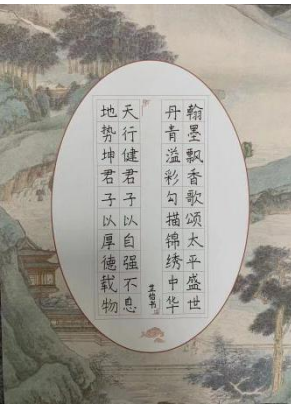 翰墨飘香歌颂太平盛世
丹青溢彩勾描锦绣中华
天行健君子以自强不息
地势坤君子以厚德载物